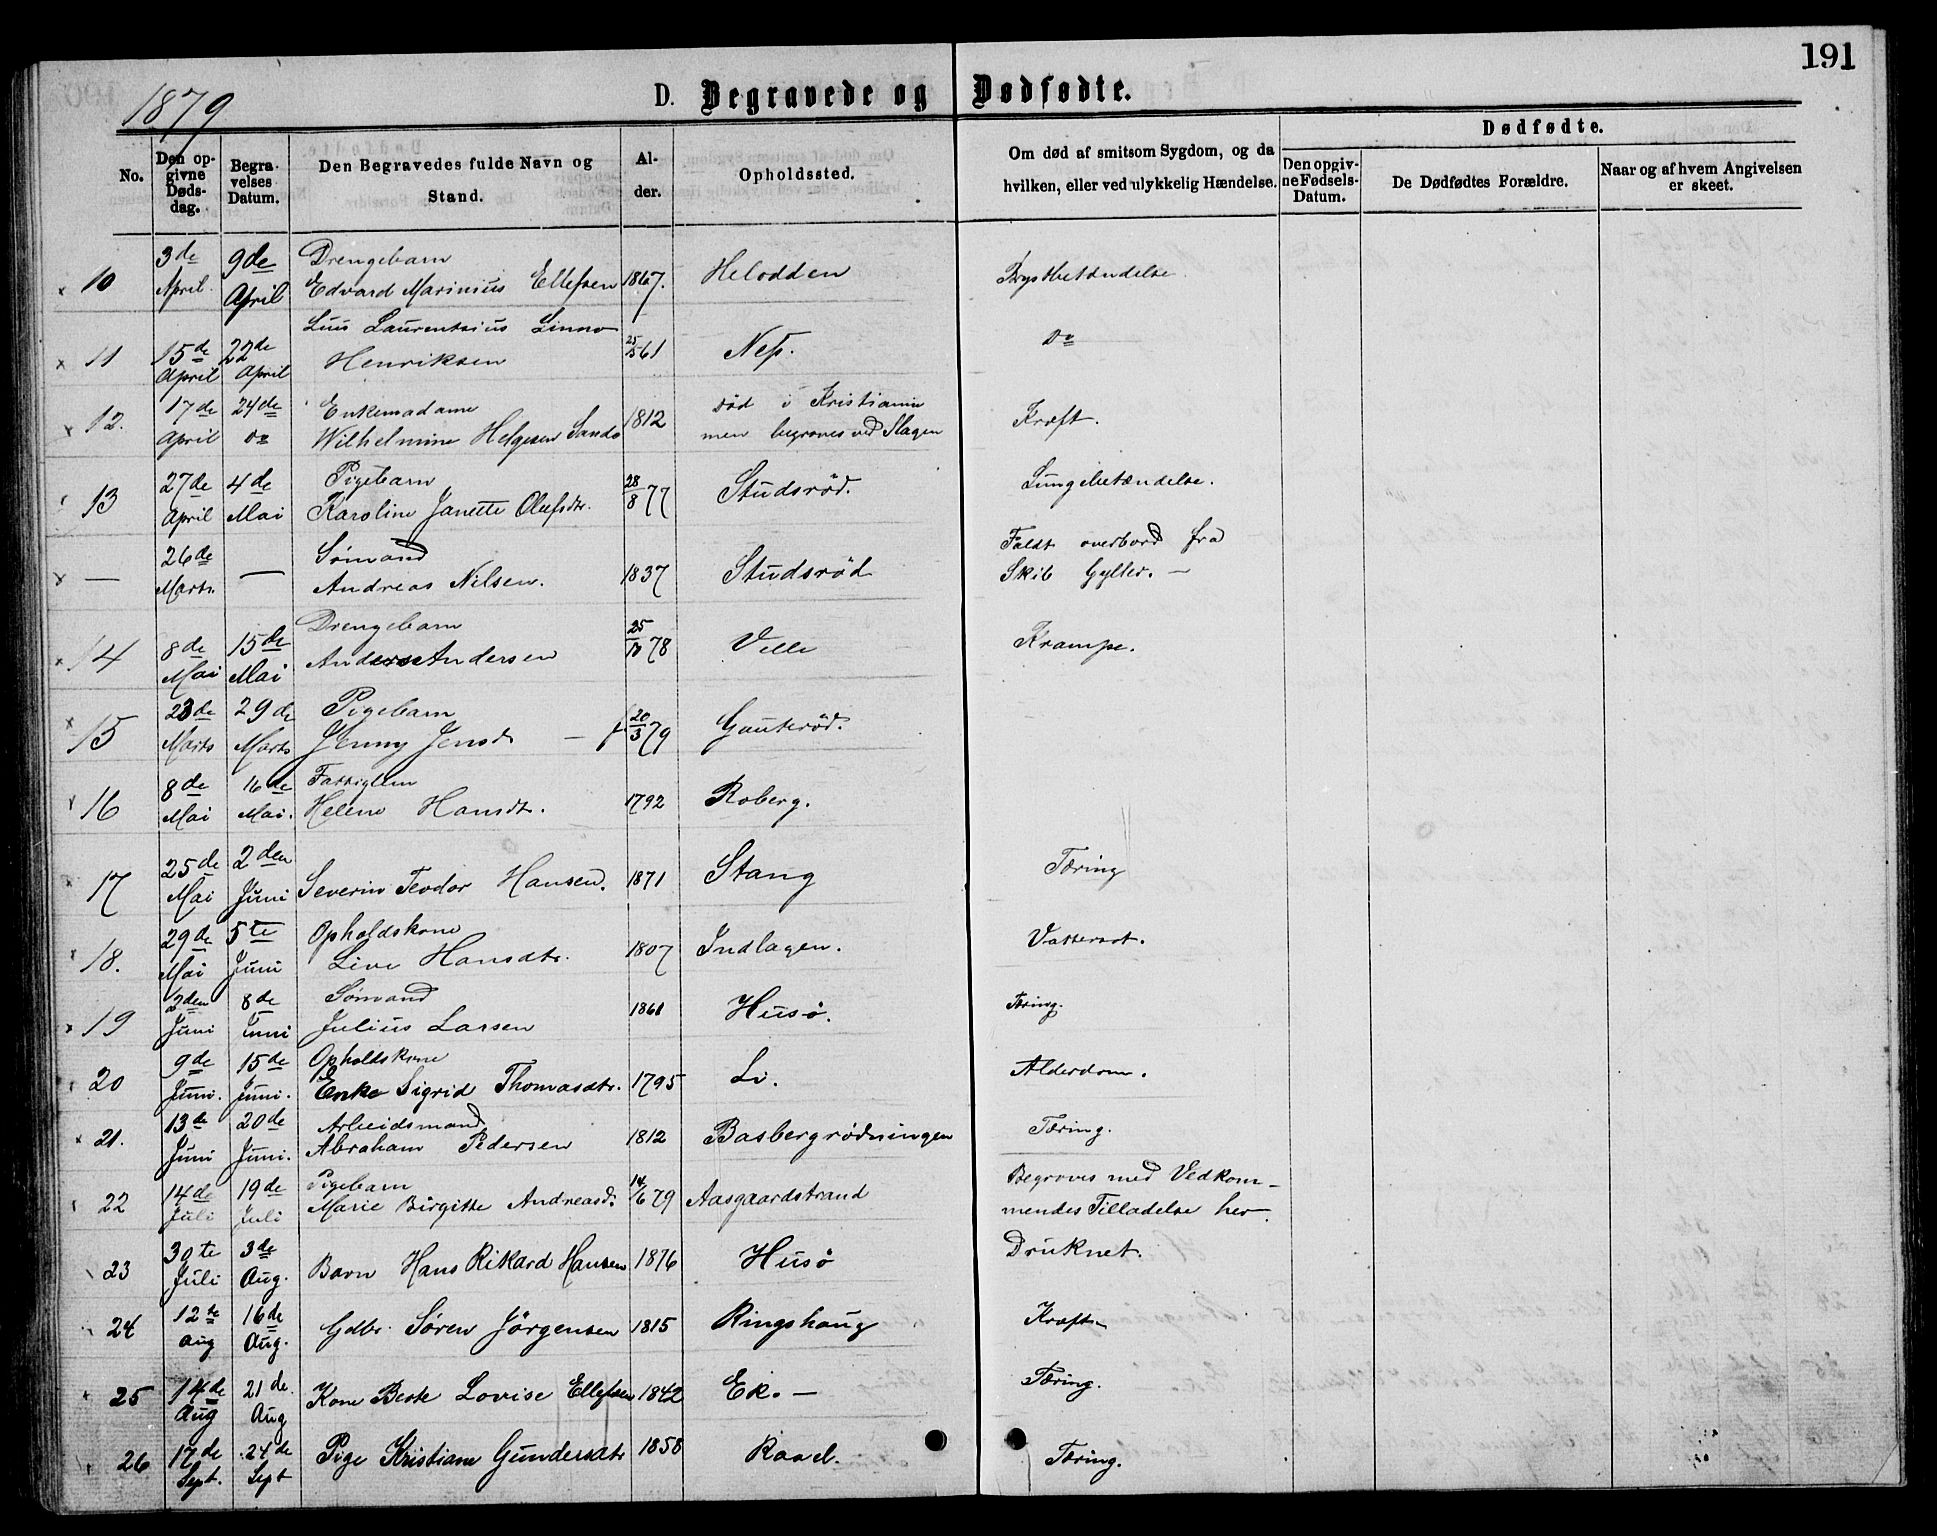 191
1879
D. Begravede og Dødfødte.
No.
Den opgivne Døds-dag.
Begravelses Datum.
Den Begravedes fulde Navn og Stand.
Alder.
Opholdssted.
Om død af smitsom Sygdom, og da hvilken, eller ved ulykkelig Hændelse.
Dødfødte.
Den opgivne Fødsels-Datum.
De Dødfødtes Forældre.
Naar og af hvem Angivelsen er skeet.
10 3de April 9de April Drengebarn Edvard Marinius Ellefsen 1867. Helodden Brystbetændelse
11 15de April 22de April Laurentsius Linno Henriksen 61 Nes. Do
12. 17de April 24de Do Enkemadame Wilhelmine Helgesen Sande 1812 død i Kristiania men begraves ved Slagen Kræft.
13 27de April 4de Mai Pigebarn Karoline Janette Olufsdtr. 28/8 77 Studsrød. Lungebetændelse.
— 26de Marts. — Sømand Andreas Nilsen. 1837 Studsrød Faldt overbord fra Skib Gylter. —
14 8de Mai 15de Mai Drengebarn Anders Andersen 25/10 78 Velle Krampe.
15 23de Marts 29de Marts Pigebarn Jenny Jensd — f. 20/3 79 Gauterød.
16 8de Mai 16de Mai. Fattiglem Helene Hansdtr. 1792 Roberg.
17 25de Mai 2den Juni Severin Teodor Hansen. 1871 Stang Tæring
18. 29de Mai 5te Juni Opholdskone Live Hansdtr. 1807 Indlagen. Vattersot.
19 2den Juni 8de Juni Sømand Julius Larsen 1861 Husø. Tæring.
20 9de Juni. 15de Juni. Opholdskone Enke Sigrid Thomasdtr. 1795 Li. Alderdom.
21. 13de Juni 20de Juni. Arbeidsmand Abraham Pedersen 1812 Basbergrødningen Tæring.
22 14de Juli 19de Juli Pigebarn Marie Birgitte Andreasd. 14/6 79 Aasgaardstrand Begraves med Vedkommendes Tilladelse her.
23 30te Juli 3de Aug. Barn Hans Rikard Hansen 1876 Husø Druknet.
24 12te Aug 16de Aug. Gdbr. Søren Jörgensen 1815 Ringshaug Kræft
25 14de Aug 21de Aug Kone Beate Lovise Ellefsen 1842 Ek. — Tæring.
26 17de Sept. 24de Sept Pige Kristiane Gundersdtr 1858 Raael. Tæring.